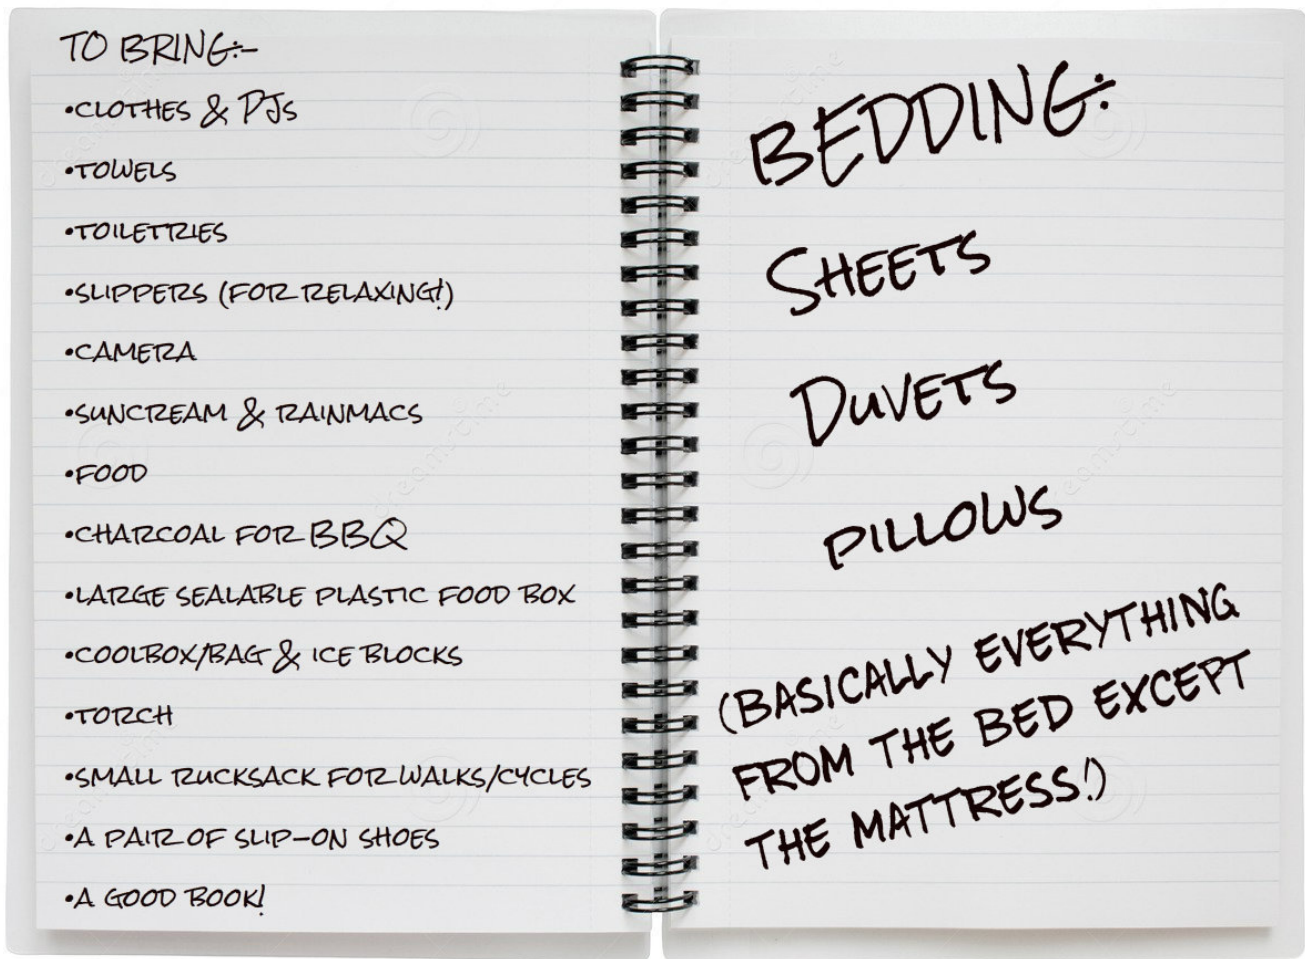 TO BRING:-
•CLOTHES & PJs
•TOWELS
•TOILETTRIES
•SLIPPERS (FOR RELAXING!)
•CAMERA
•SUNCREAM & RAINMACS
•FOOD
•CHARCOAL FOR BBQ
•LARGE SEALABLE PLASTIC FOOD BOX
•COOLBOX/BAG & ICE BLOCKS
•TORCH
•SMALL RUCKSACK FOR WALKS/CYCLES
•A PAIR OF SLIP-ON SHOES
•A GOOD BOOK!
BEDDING:
SHEETS
DUVETS
PILLOWS
(BASICALLY EVERYTHING
FROM THE BED EXCEPT
THE MATTRESS!)
dreamstime